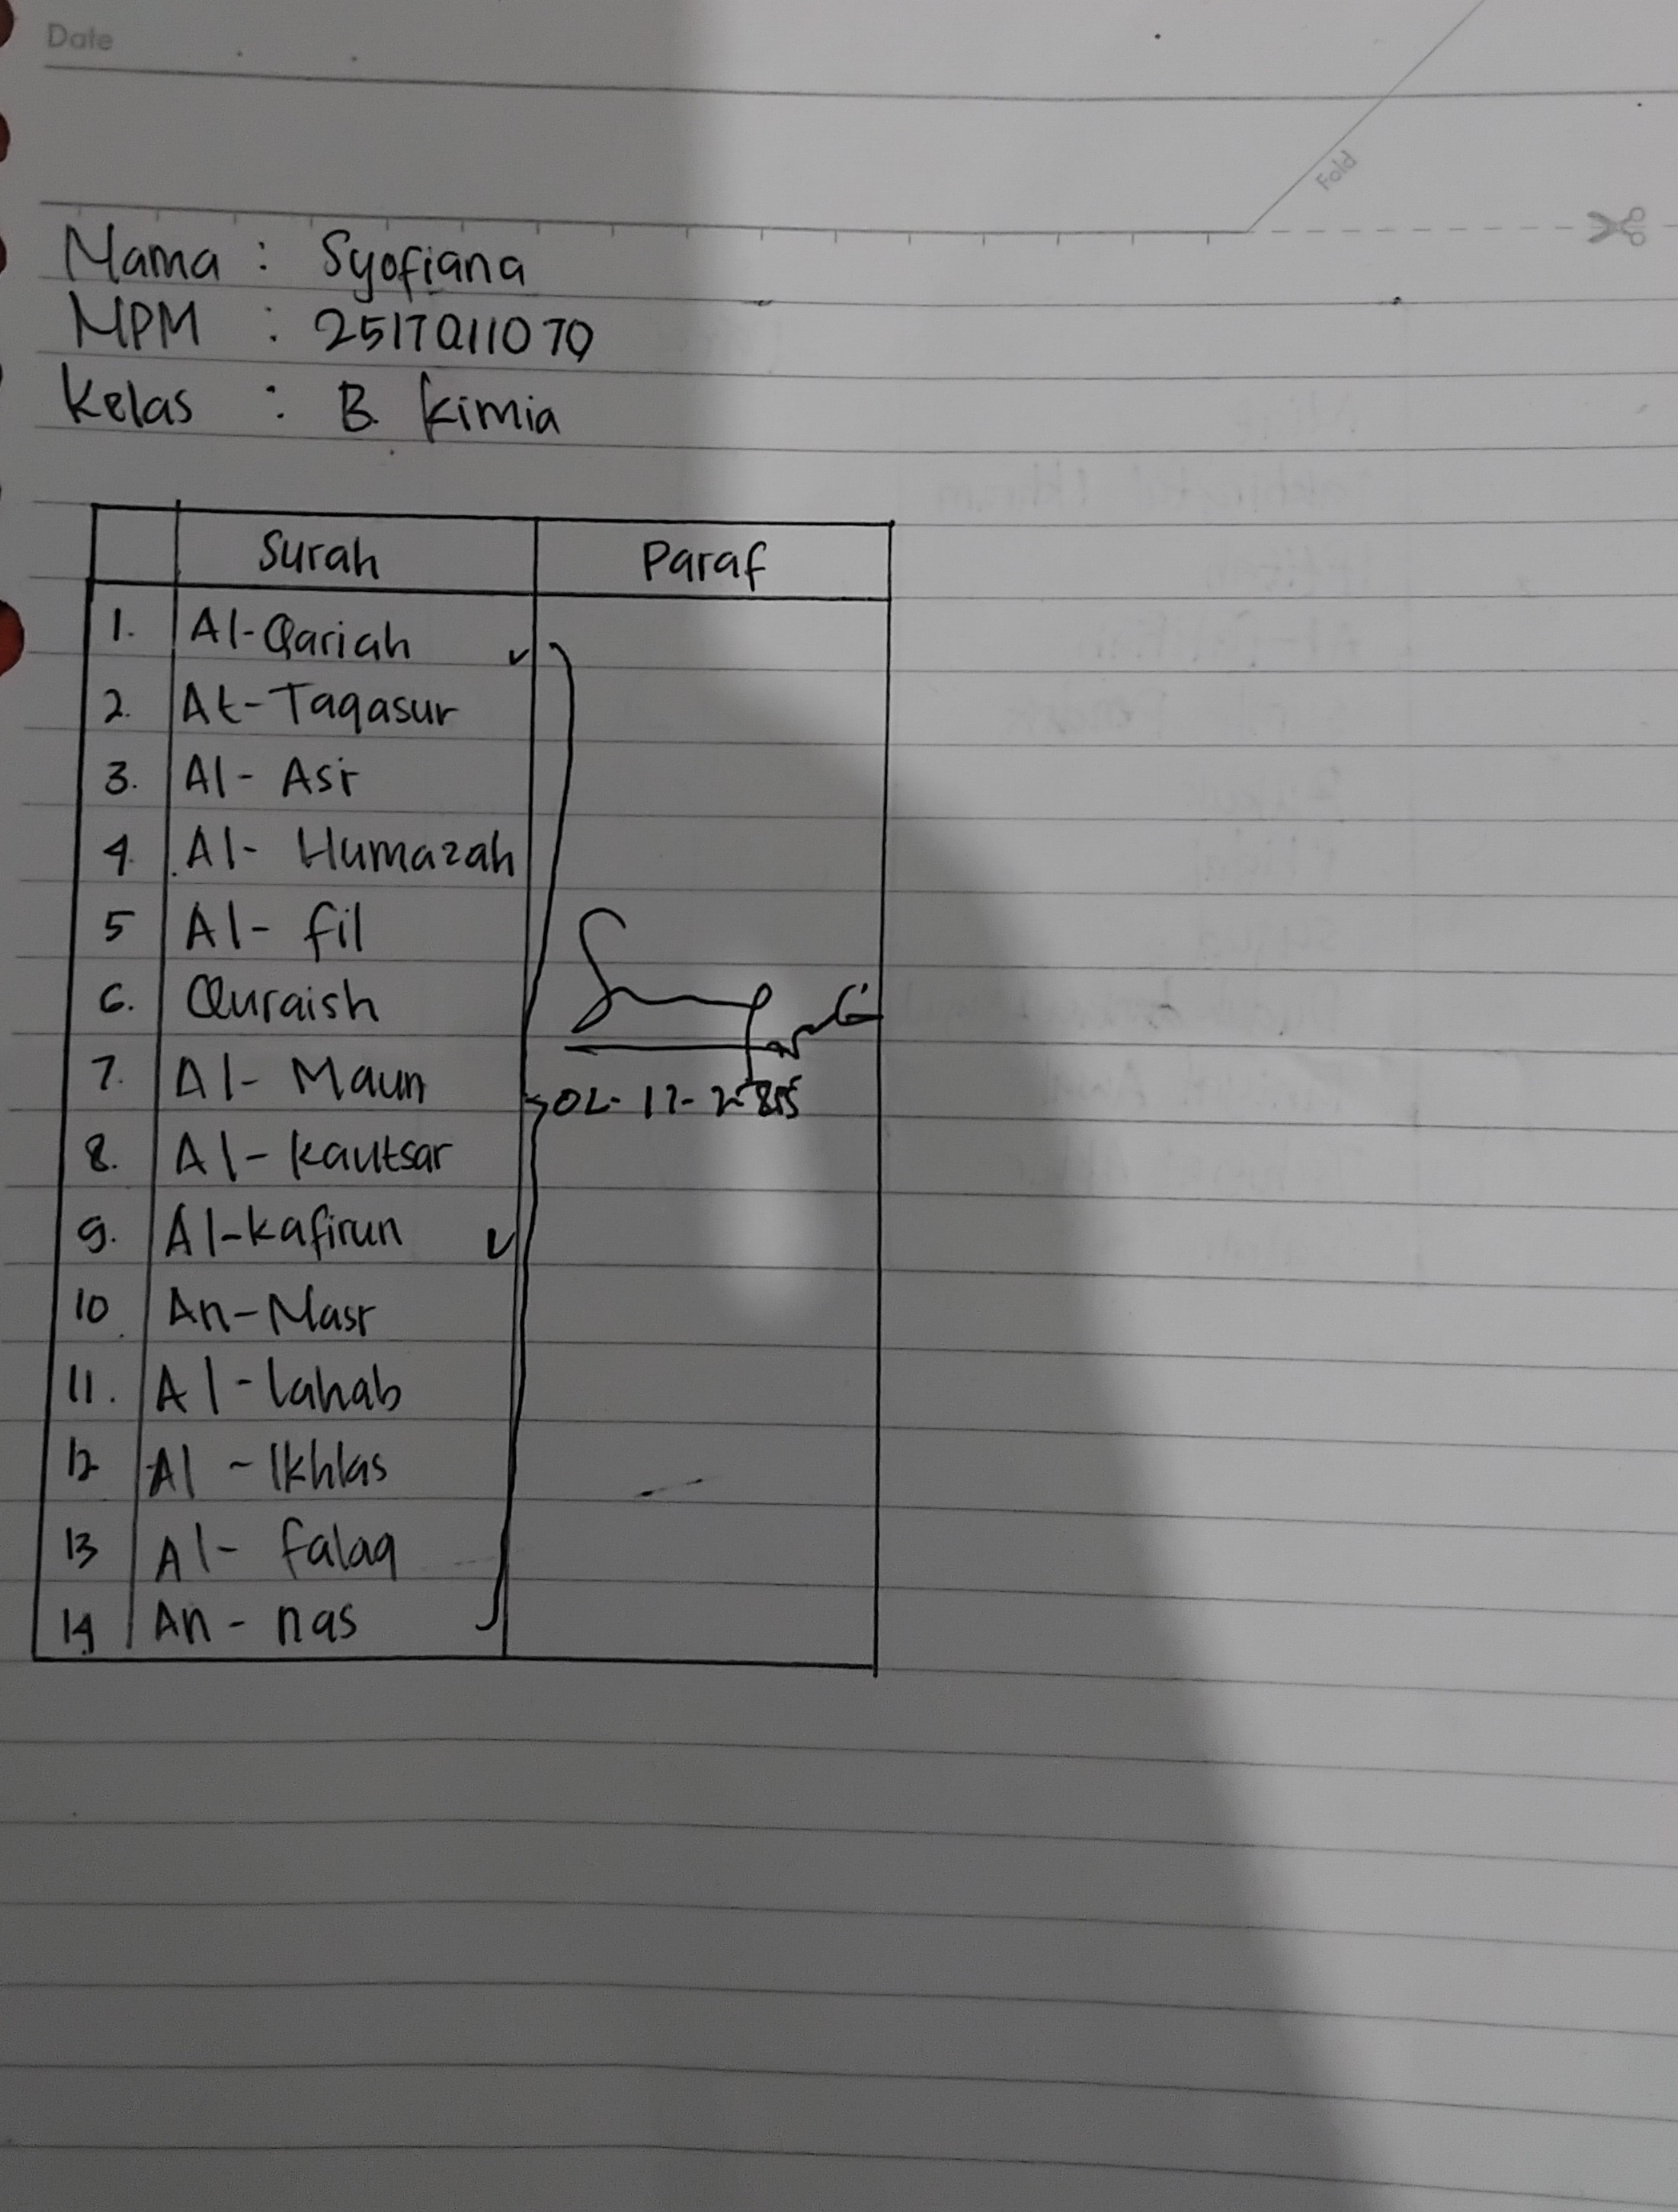 Date
Fold
Nama : Syofiana
NPM : 2517011070
Kelas : B. Kimia
Surah Paraf
1. Al-Qariah
2. At-Taqasur
3. Al- Asr
4. Al- Humazah
5 Al- fil
6. Quraish
7. Al- Maun
8. Al-kautsar
9. Al-kafirun
10 An-Nasr
11. Al-lahab
12 Al - Ikhlas
13 Al- falaq
14 An- nas